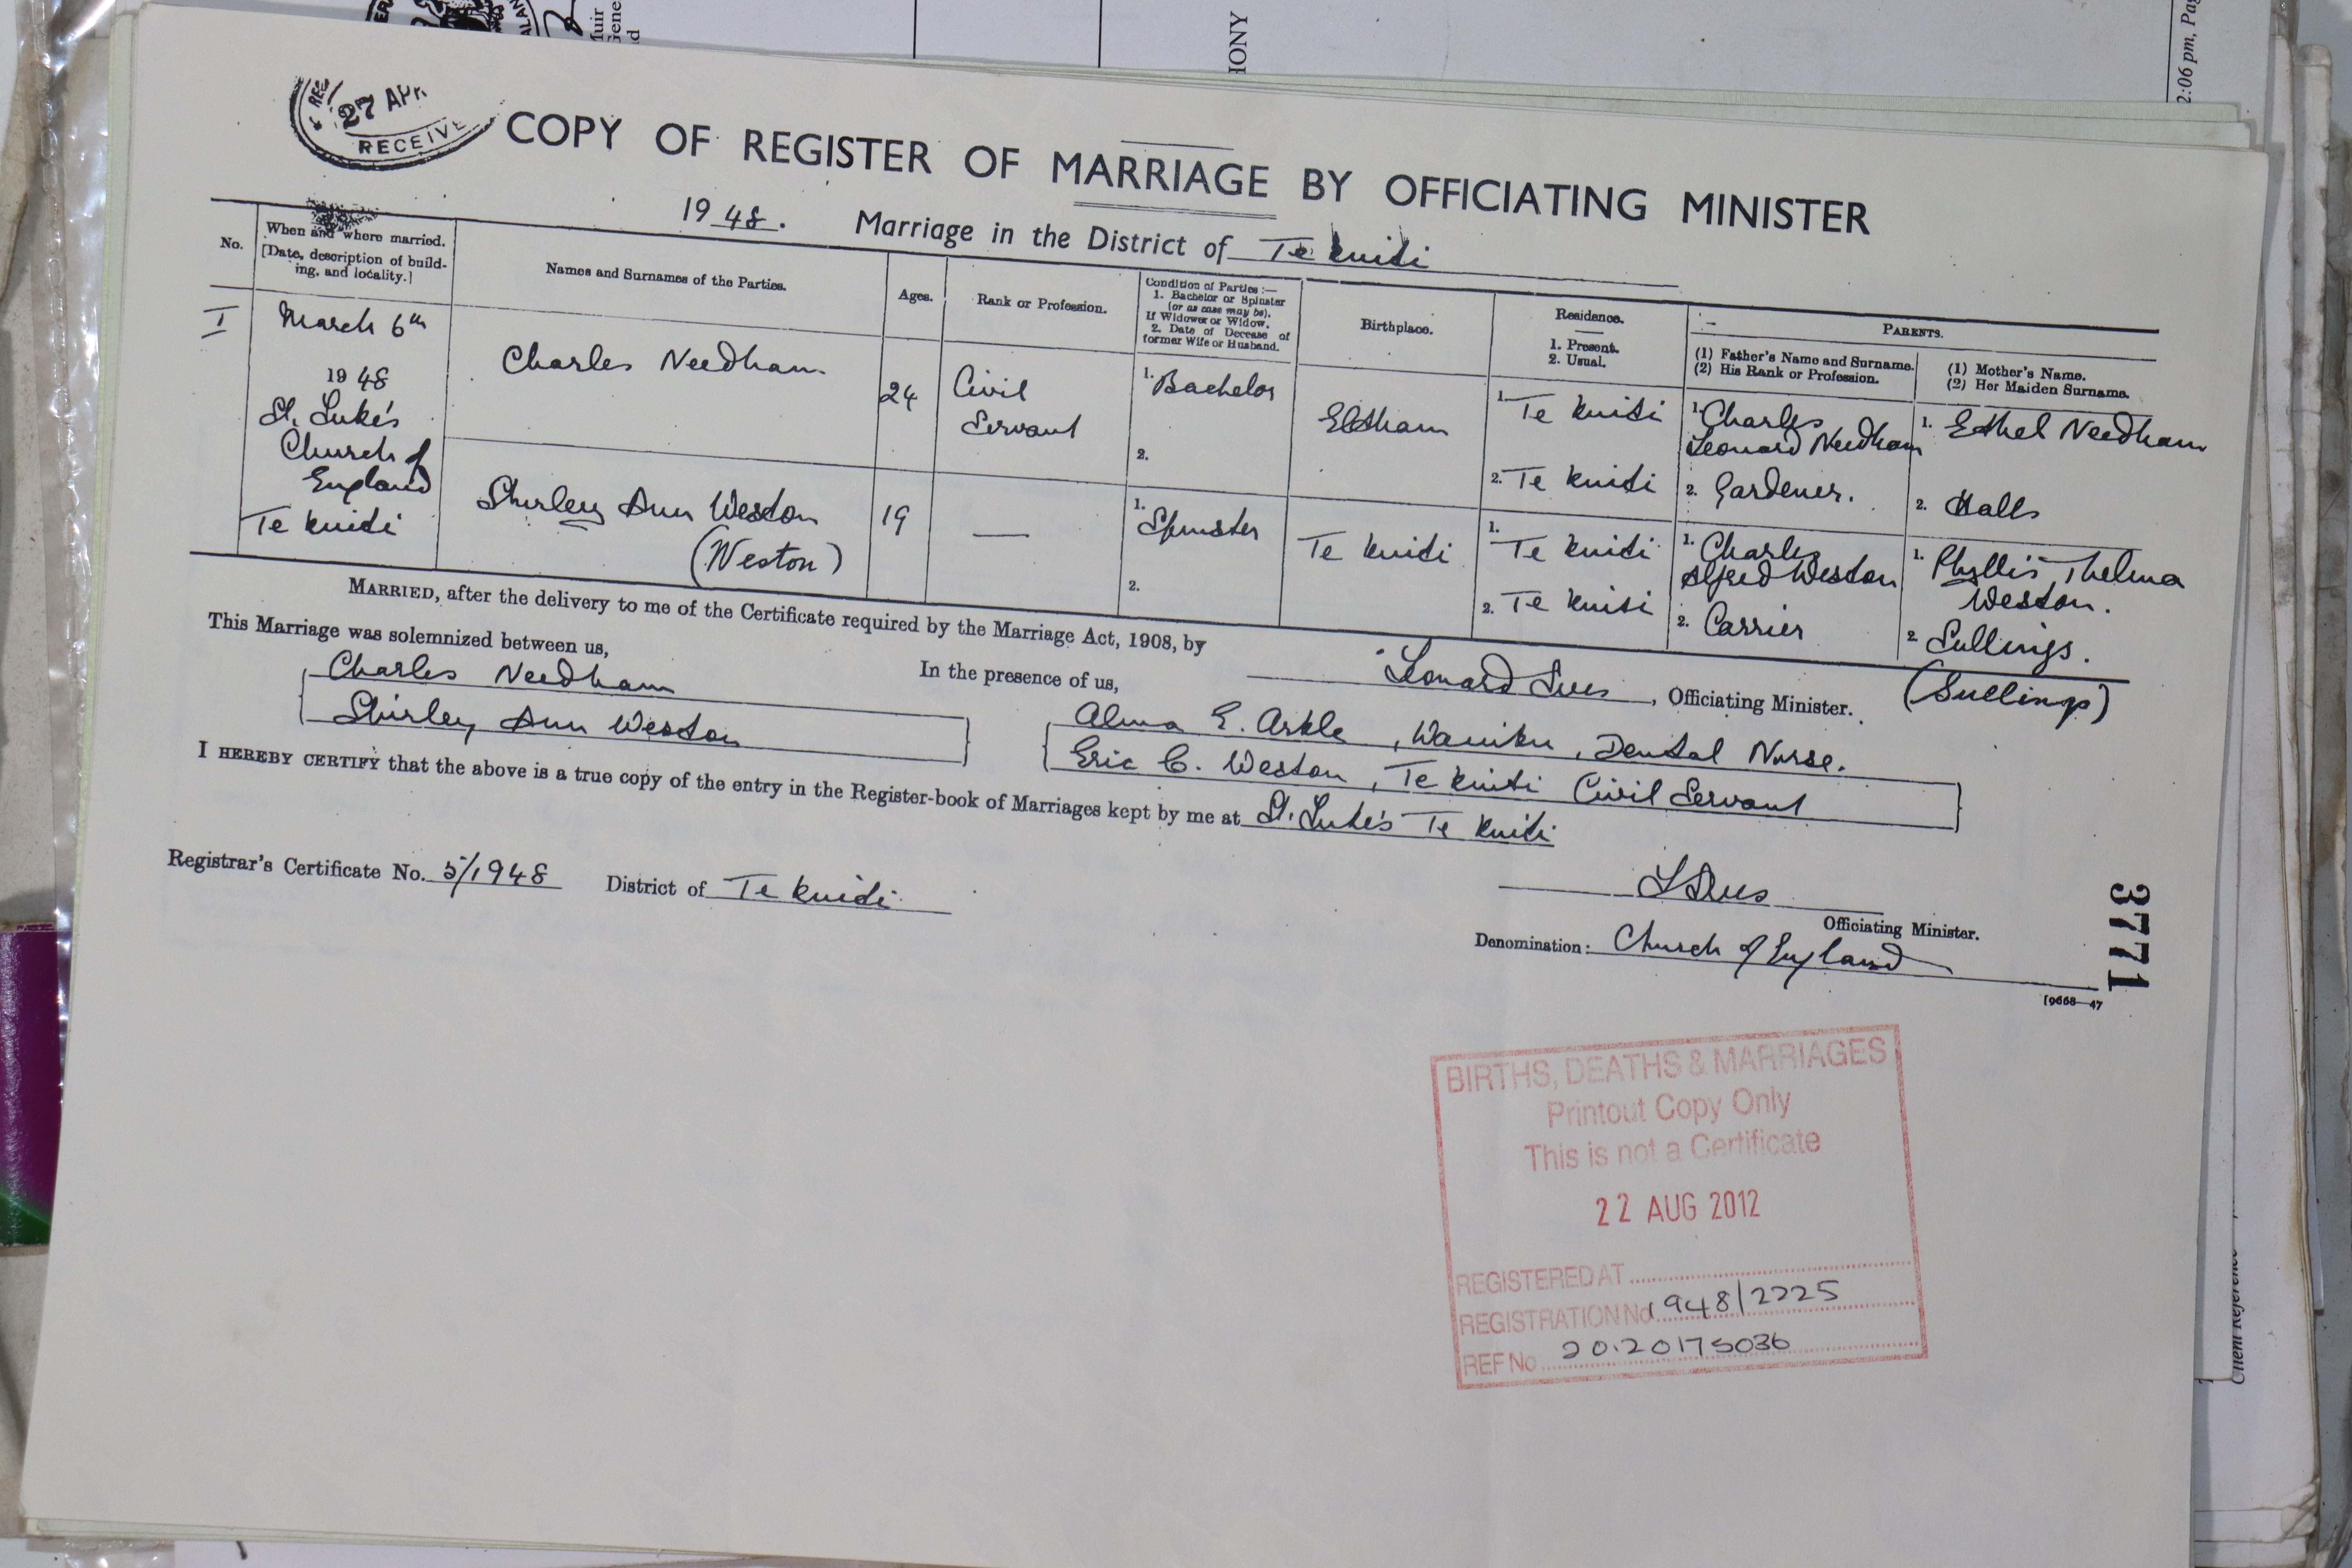 Muir
Gene
HONY
2:06 pm, Pag
27 APR
RECEIVE
COPY OF REGISTER OF MARRIAGE BY OFFICIATING MINISTER
1948. Marriage in the District of Te Kuiti
No.
When and where married.
[Date, description of build-
ing, and locality.]
Names and Surnames of the Parties.
Ages.
Rank or Profession.
Condition of Parties:—
1. Bachelor or Spinster
(or as case may be).
If Widower or Widow.
2. Date of Decease of
former Wife or Husband.
Birthplace.
Residence.
1. Present.
2. Usual.
PARENTS.
(1) Father's Name and Surname.
(2) His Rank or Profession.
(1) Mother's Name.
(2) Her Maiden Surname.
I
March 6th
1948
St. Luke's
Church of
England
Te Kuiti
Charles Needham
24
Civil
Servant
1. Bachelor
2.
Eltham
1. Te Kuiti
2. Te Kuiti
1. Charles
Leonard Needham
2. Gardener.
1. Ethel Needham
2. Halls
Shirley Ann Weston
(Weston)
19
—
1. Spinster
2.
Te Kuiti
1. Te Kuiti
2. Te Kuiti
1. Charles
Alfred Weston
2. Carrier
1. Phyllis Thelma
Weston.
2. Sullings.
(Sullings)
MARRIED, after the delivery to me of the Certificate required by the Marriage Act, 1908, by
Leonard Ives, Officiating Minister.
This Marriage was solemnized between us,
Charles Needham
Shirley Ann Weston
In the presence of us,
Alma E. Arkle, Waiuku, Dental Nurse.
Eric C. Weston, Te Kuiti Civil Servant
I HEREBY CERTIFY that the above is a true copy of the entry in the Register-book of Marriages kept by me at St. Luke's Te Kuiti
Registrar's Certificate No. 5/1948 District of Te Kuiti
L Ives
Officiating Minister.
Denomination: Church of England
3771
[9668—47
BIRTHS, DEATHS & MARRIAGES
Printout Copy Only
This is not a Certificate
22 AUG 2012
REGISTERED AT
REGISTRATION No 1948/2225
REF No 20.20175036
Client Reference